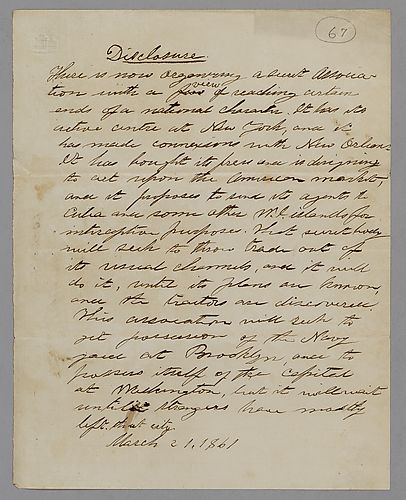 67
Disclosure
There is now organising a secret Associa-
tion with a view of reaching certain
ends of a national character. It has its
active centre at New York, and it
has made connexions with New Orleans.
It has bought its and is designing
to act upon the American market,
and it proposes to send its agents to
Cuba and some other W.I. islands for
interceptive purposes. That secret body
will seek to throw trade out of
its usual channels, and it will
do it, until its plans are known,
and the traitors are discovered.
This association will seek to
get possession of the Navy
yard at Brooklyn, and to
possess itself of the capitol
at Washington, but it will wait
until strangers have mostly
left that city.
March 21, 1861